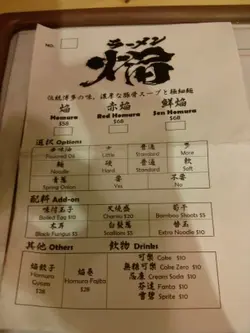 NO.
ラーメン
焔
伝統博多の味，濃厚な豚骨スープと極細麺
焔 赤焔 鮮焔
Homura Red Homura Sen Homura
$58 $68 $68
選択 Options
味油 少 普通 多
Flavored Oil Little Standard More
麺 硬 普通 軟
Noodle Hard Standard Soft
青葱 要 不要
Spring Onion Yes No
配料 Add-on
味付玉子 叉焼盛 筍子
Boiled Egg $10 Charsu $20 Bamboo Shoots $5
木耳 白髮葱 替玉
Black Fungus $5 Scallions $5 Extra Noodle $10
其他 Others 飲物 Drinks
焔餃子 焔卷 可樂 Coke $10
Homura Homura Frajita 無糖可樂 Coke Zero $10
Gyoza $28 忌廉 Cream Soda $10
$28 芬達 Fanta $10
雪碧 Sprite $10